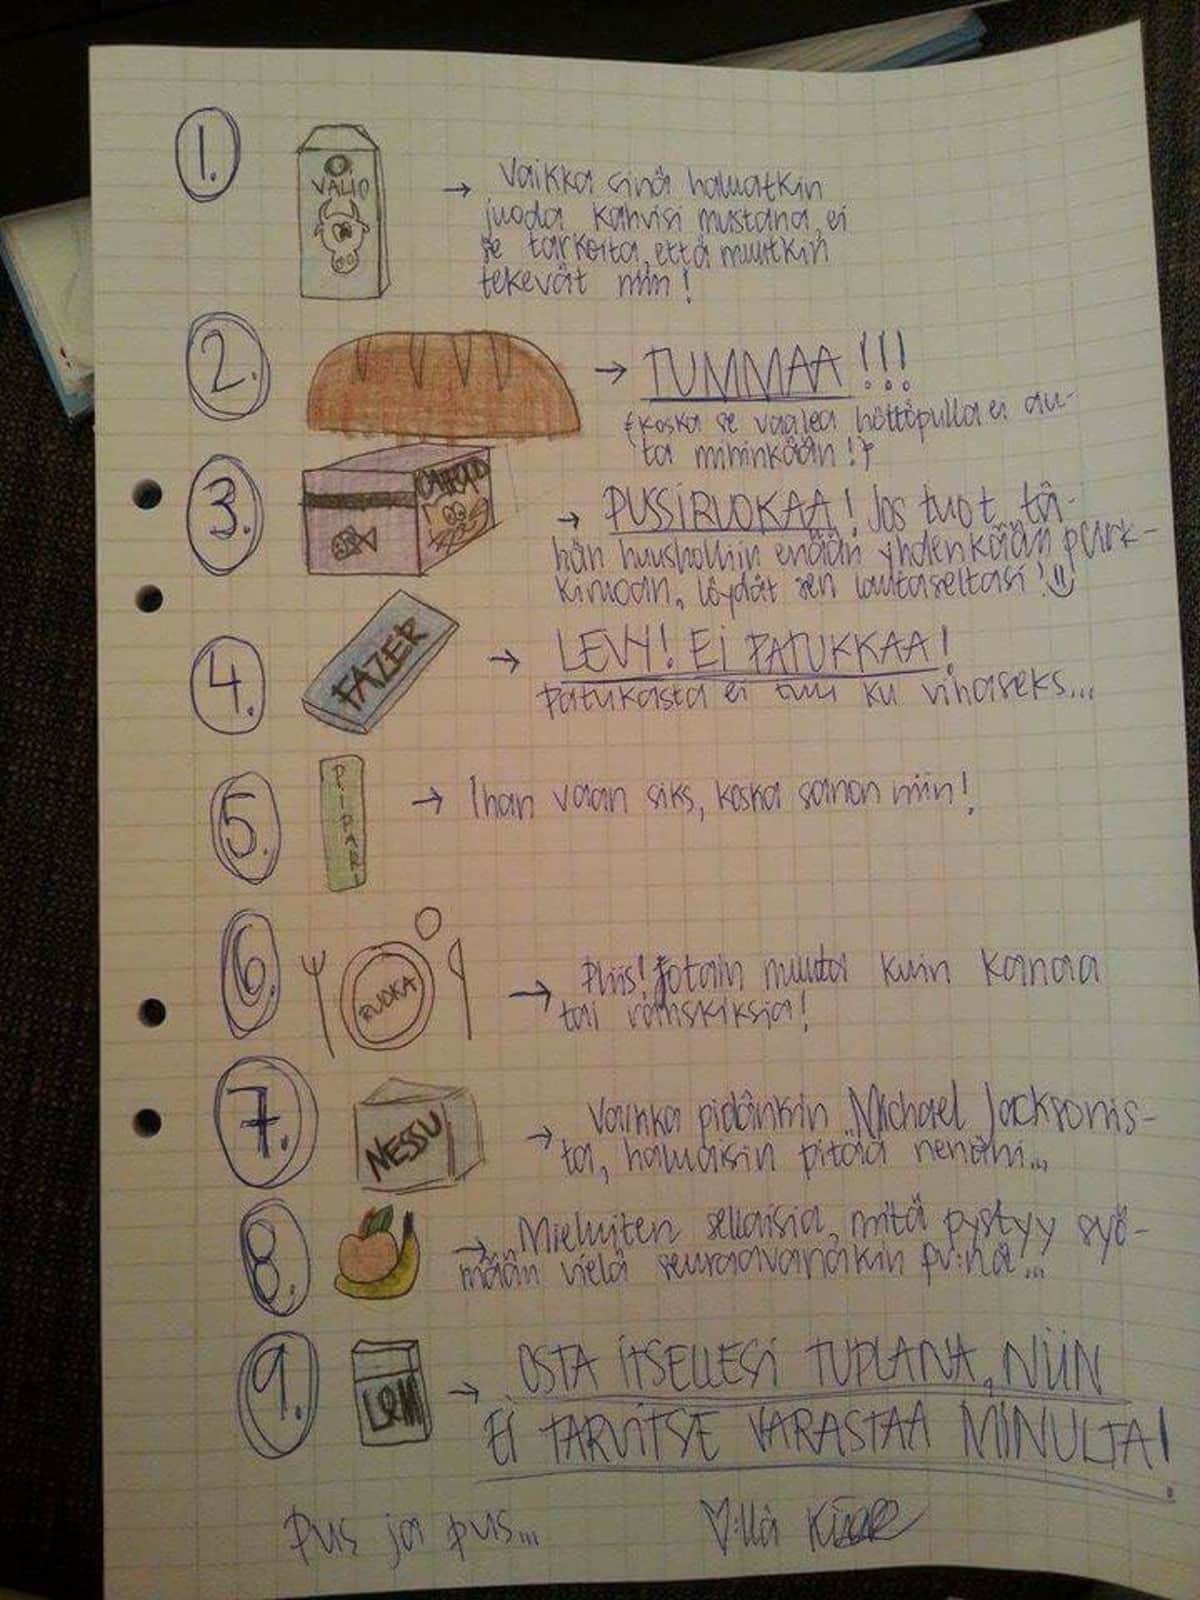 1.
VALIO
→ Vaikka sinä haluatkin
juoda kahvisi mustana, ei
se tarkoita, että muutkin
tekevät niin!
2.
→ TUMMAA!!!
(koska se vaalea höttöpulla ei au-
ta mihinkään!)
3.
CATFOOD
→ PUSSIRUOKAA! Jos tuot tä-
hän huusholliin enään yhdenkään purk-
kimoan, löydät sen lautaseltasi!
4.
FAZER
→ LEVY! EI PATUKKAA!
Patukasta ei tuu ku vihaseks...
5.
PIPARI
→ Ihan vaan siks, koska sanon niin!
6.
RUOKA
→ Pliis! Jotain muuta kuin kanaa
tai ranskiksia!
7.
NESSU
→ Vaikka pidänkin Michael Jacksonis-
ta, haluaisin pitää nenäni...
8.
→ Mieluiten sellaisia, mitä pystyy syö-
mään vielä seuraavanakin pv:nä...
9.
L&M
→ OSTA ITSELLESI TUPLANA, NIIN
EI TARVITSE VARASTAA MINULTA!
Pus ja pus...
♡:llä